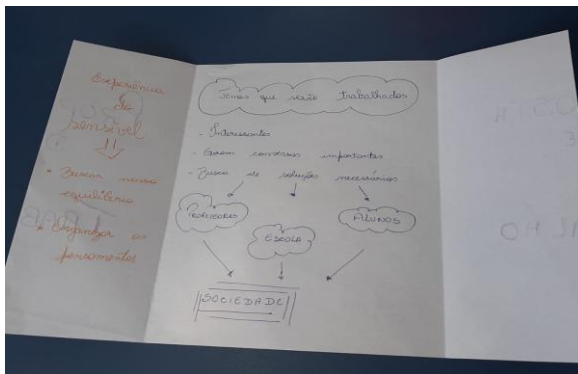 Experiência
do
sensível
• Buscar nosso
equilíbrio
• Organizar os
pensamentos
Temas que serão trabalhados
- Interessantes
- Geram conversas importantes
- Busca de soluções necessárias
PROFESSORES
ESCOLA
ALUNOS
SOCIEDADE